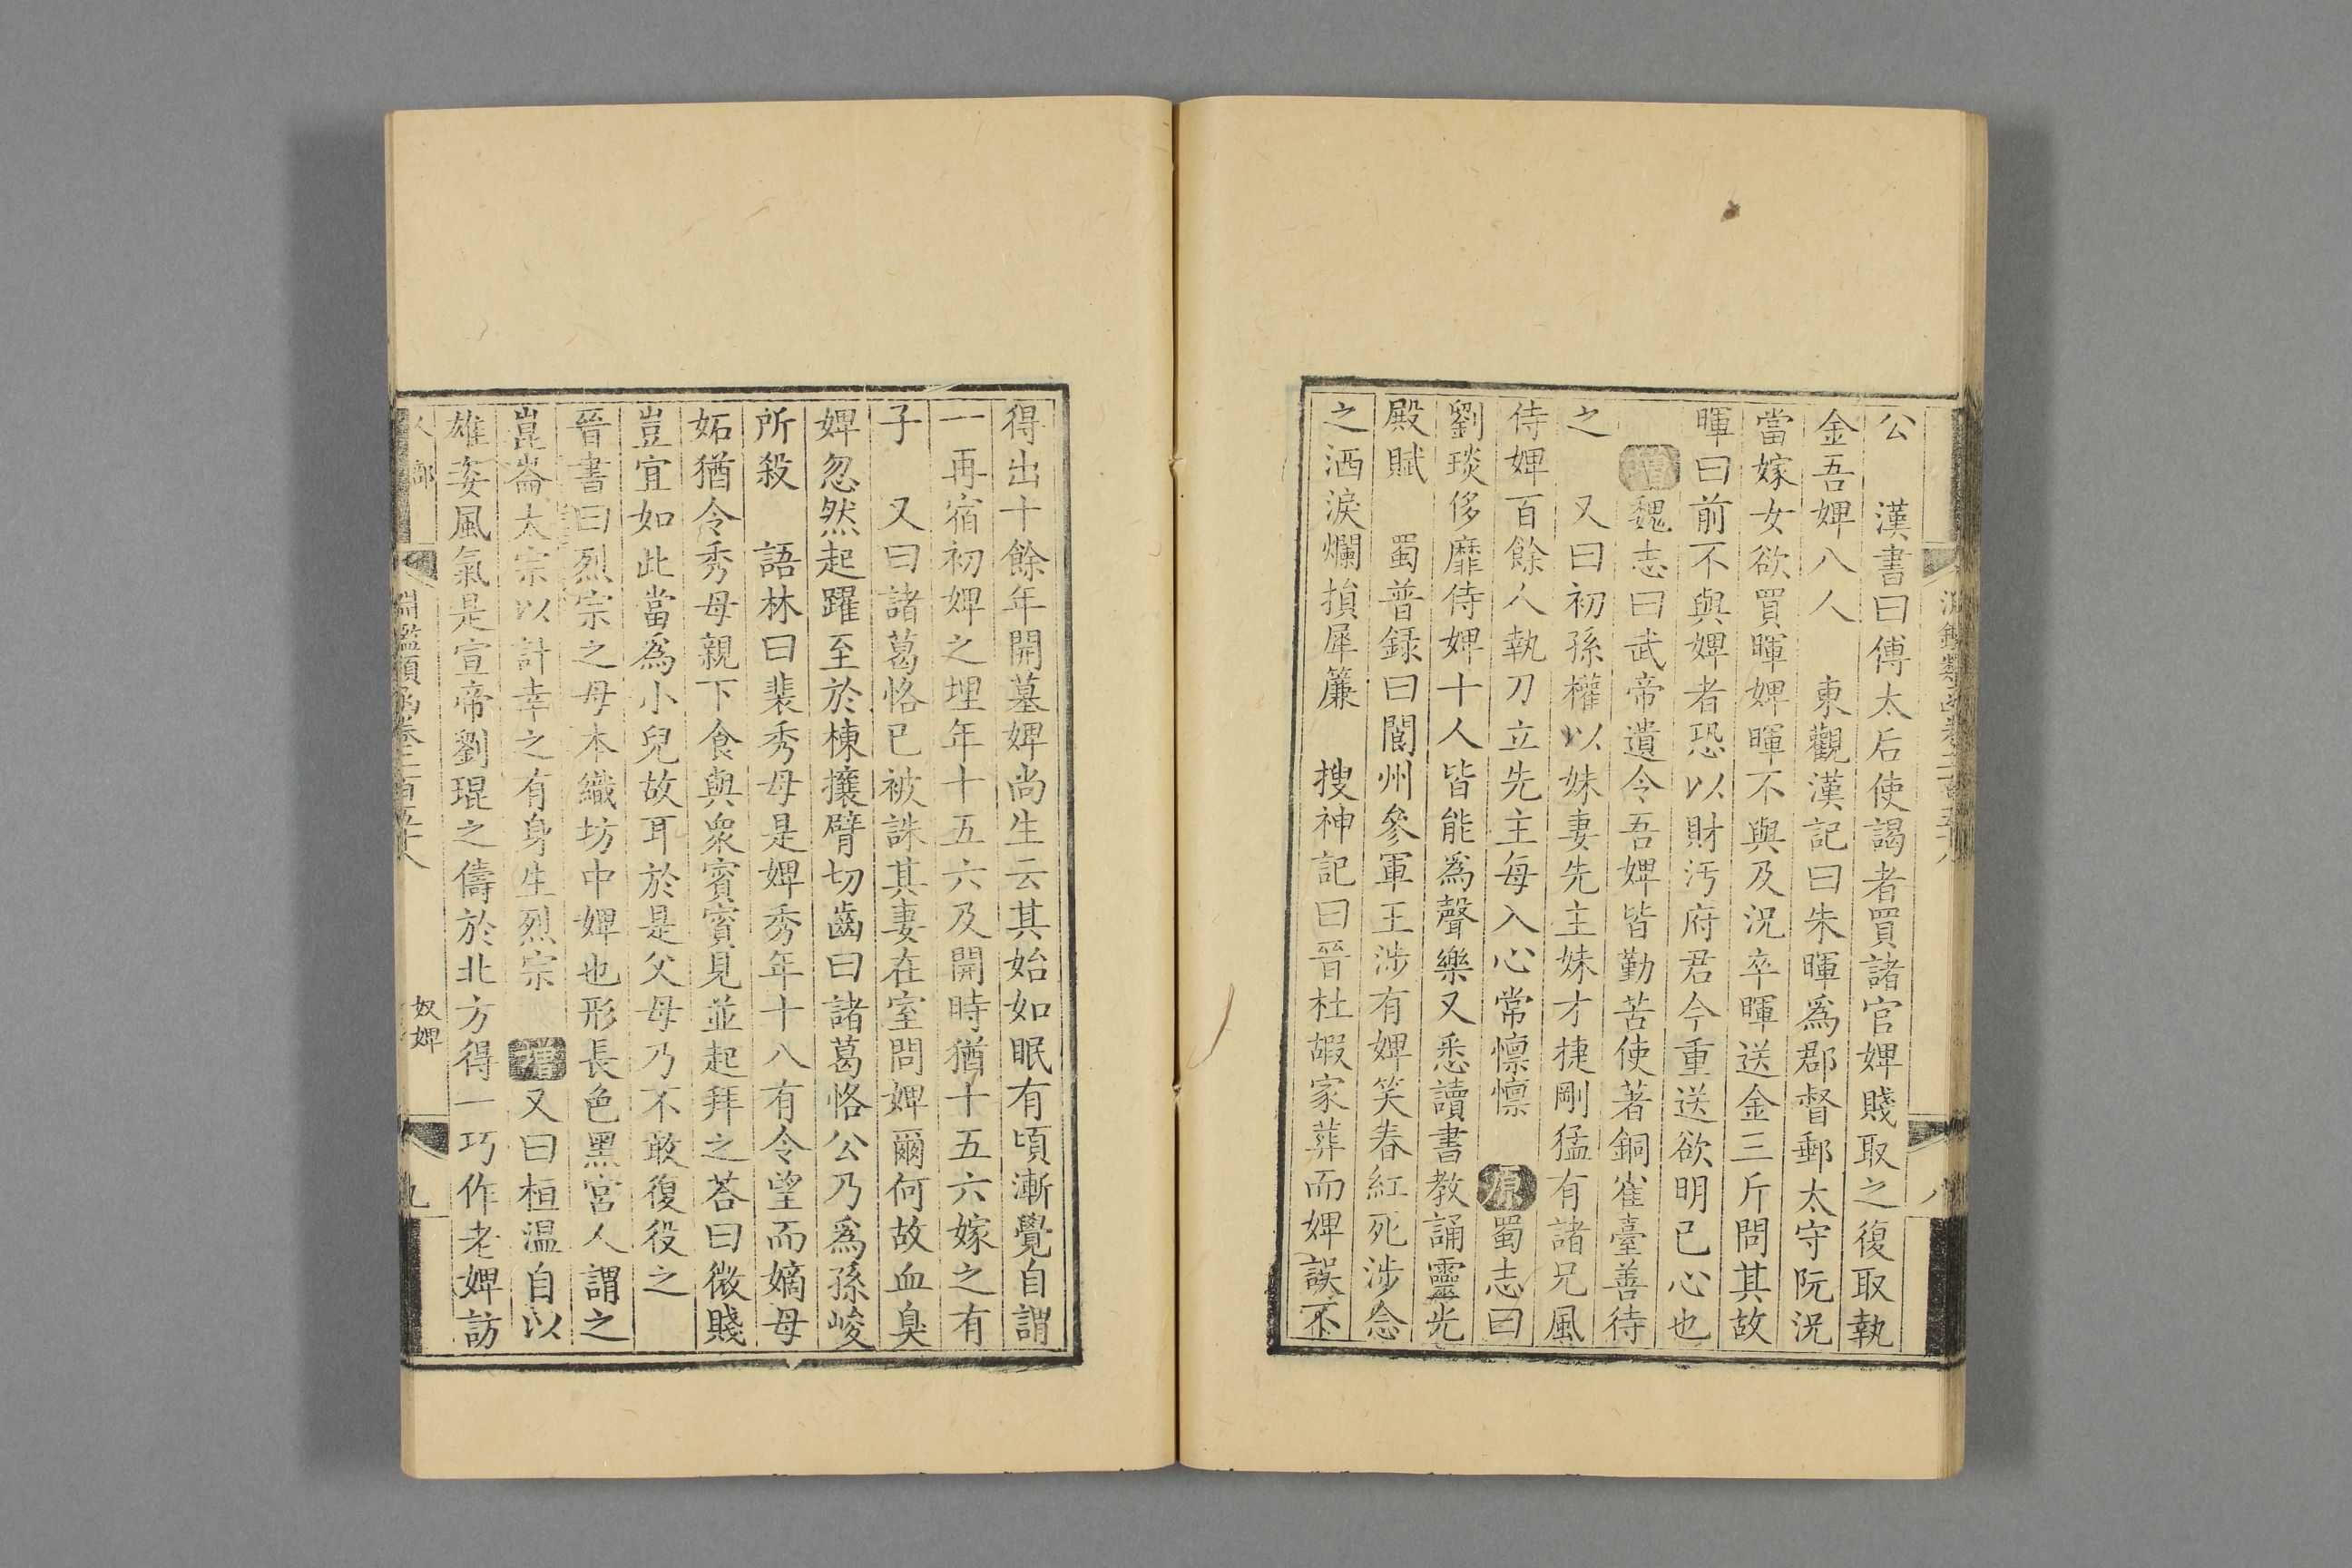 公　漢書曰傅太后使謁者買諸官婢賤取之復取執
金吾婢八人　東觀漢記曰朱暉爲郡督郵太守阮況
當嫁女欲買暉婢暉不與及況卒暉送金三斤問其故
暉曰前不與婢者恐以財汚府君今重送欲明己心也
增魏志曰武帝遺令吾婢皆勤苦使著銅雀臺善待
之　又曰初孫權以妹妻先主妹才捷剛猛有諸兄風
侍婢百餘人執刀立先主每入心常懔懔　原蜀志曰
劉琰侈靡侍婢十人皆能爲聲樂又悉讀書教誦靈光
殿賦　蜀普録曰閬州參軍王涉有婢笑春紅死涉念
之洒淚爛損犀簾　搜神記曰晉杜嘏家葬而婢誤不
得出十餘年開墓婢尚生云其始如眠有頃漸覺自謂
一再宿初婢之埋年十五六及開時猶十五六嫁之有
子　又曰諸葛恪已被誅其妻在室問婢爾何故血臭
婢忽然起躍至於棟攘臂切齒曰諸葛恪公乃爲孫峻
所殺　語林曰裴秀母是婢秀年十八有令望而嫡母
妬猶令秀母親下食與衆賓賓見並起拜之荅曰微賤
豈宜如此當爲小兒故耳於是父母乃不敢復役之
晉書曰烈宗之母本織坊中婢也形長色黑宮人謂之
崑崙太宗以計幸之有身生烈宗　增又曰桓温自以
雄姿風氣是宣帝劉琨之儔於北方得一巧作老婢訪
淵鑑類函卷二百五十八
奴婢
九